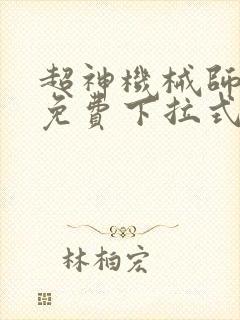 超神機械師
免費下拉式
林柏宏